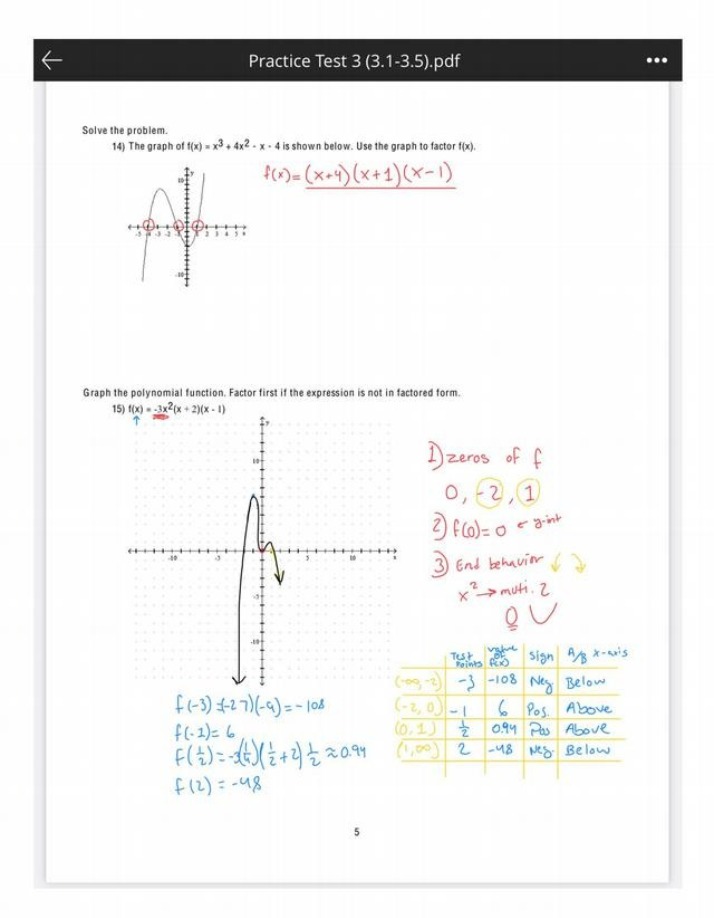 Practice Test 3 (3.1-3.5).pdf
Solve the problem.
14) The graph of f(x) = x³ + 4x² - x - 4 is shown below. Use the graph to factor f(x).
f(x) = (x+4)(x+1)(x-1)
y
10
-5 -4 -3 -2 2 3 4 5 x
-10
Graph the polynomial function. Factor first if the expression is not in factored form.
15) f(x) = -3x²(x + 2)(x - 1)
y
10
-10 -5 5 10 x
-5
-10
1) zeros of f
0, -2, 1
2) f(0) = 0 ← y-int
3) End behavior
x² → muti. 2
0
Test Points Value of f(x) Sign A/B x-axis
(-∞, -2) -3 -108 Neg Below
(-2, 0) -1 6 Pos. Above
(0, 1) ½ 0.94 Pos Above
(1, ∞) 2 -48 Neg. Below
f(-3) = (-27)(-4) = -108
f(-1) = 6
f(½) = -3(¼)(½+2) ½ ≈ 0.94
f(2) = -48
5